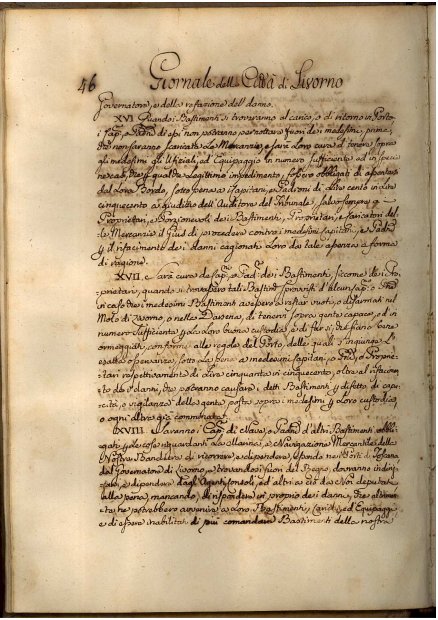 46 Giornale della Città di Livorno
Governatore, e della refazione del danno.
XVI Quando i Bastimenti si troveranno al carico, o di ritorno in Porto
i Capi, o Padroni di essi non potranno pernottare fuori de i medesimi, prima,
che non saranno scaricate le Mercanzie, e sarà loro cura di tenere sopra
gli medesimi gli Ufiziali, ed Equipaggio in numero sufficiente ed in specie
ne casi, che per qualche legittimo impedimento, fossero obbligati di assentarsi
dal loro Bordo, sotto pena a i Capitani, e Padroni di Lire cento in Lire
cinquecento a giudizio dell' Auditore del Tribunale, salvo sempre a
Proprietari, e Porzionevoli de i Bastimenti, Proprietari, e Caricatori del
le Mercanzie il Gius di procedere contro i medesimi Capitani, e Padroni
p il rifacimento de i danni cagionati loro da tale assenza a forma
di ragione.
XVII E sarà cura de Capi, o Padri de i Bastimenti, siccome de i Pro
prietari, quando si trovassero tali Bastimti sprovvisti d'alcun Capo, o Padne
in caso che i medesimi Bastimenti avessero a restar vuoti, o disarmati nel
Molo di Livorno, o nella Darsena, di tenervi sopra gente capace, ed in
numero sufficiente p la loro buona custodia, e di far si, che siano bene
ormeggiati, conforme alle regole del Porto, delle quali s'ingiunge l'e
satta osservanza, sotto la pena a medesimi Capitani, o Padni, o Proprie
tari respettivamente di Lire cinquanta in cinquecento, oltre al rifacimen
to de i danni, che potranno causare detti Bastimenti p difetto di capa
cità, o vigilanza della gente posta sopra i medesimi p loro custodia,
o ogni altra qui comminata.
XVIII Saranno i Capi di Nave, o Padni d'altri Bastimenti obbli
gati p le cose riguardanti la Marina, e Navigazione Mercantile della
Nostra Bandiera di ricorrere, e dipendere, essendo ne i Porti di Toscana
dal Governatore di Livorno, e trovandosi fuori del Regno, dovranno indiriz
zarsi, e dipendere dagli Agenti, Consoli, ed altri a ciò da Noi deputati
alla pena, mancando, di rispondere in proprio de i danni, che al tem
ta he potrebbero avvenire a loro Bastimenti, Carichi, ed Equipaggi
e di essere inabilitati di più comandare Bastimenti della nostra